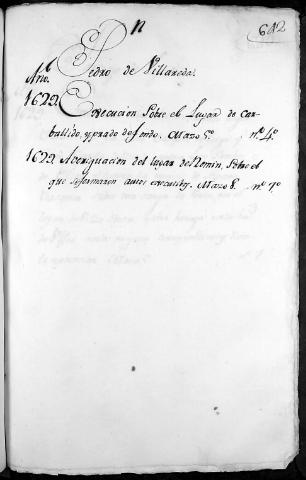 n
642
Pedro de Villareda.
Año.
1622. Execucion sobre el Lugar de Car-
ballido, y prado do fondo. Mazo 5.º nº. 4º
1622. Aberiguacion del lugar de Nomin, sobre el
que se formaron autos executibos. Mazo 8. nº. 7º